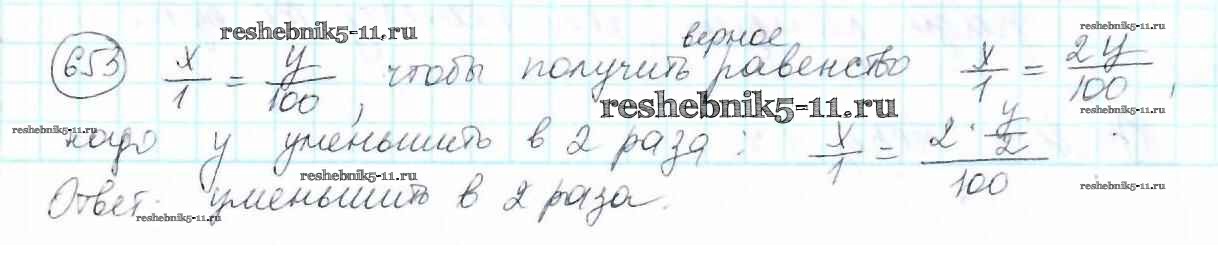 reshebnik5-11.ru
верное
653 x/1 = y/100, чтобы получить равенство x/1 = 2y/100,
reshebnik5-11.ru
reshebnik5-11.ru
reshebnik5-11.ru
reshebnik5-11.ru
надо y уменьшить в 2 раза: x/1 = (2 · y/2)/100.
reshebnik5-11.ru
reshebnik5-11.ru
Ответ. уменьшить в 2 раза.
reshebnik5-11.ru